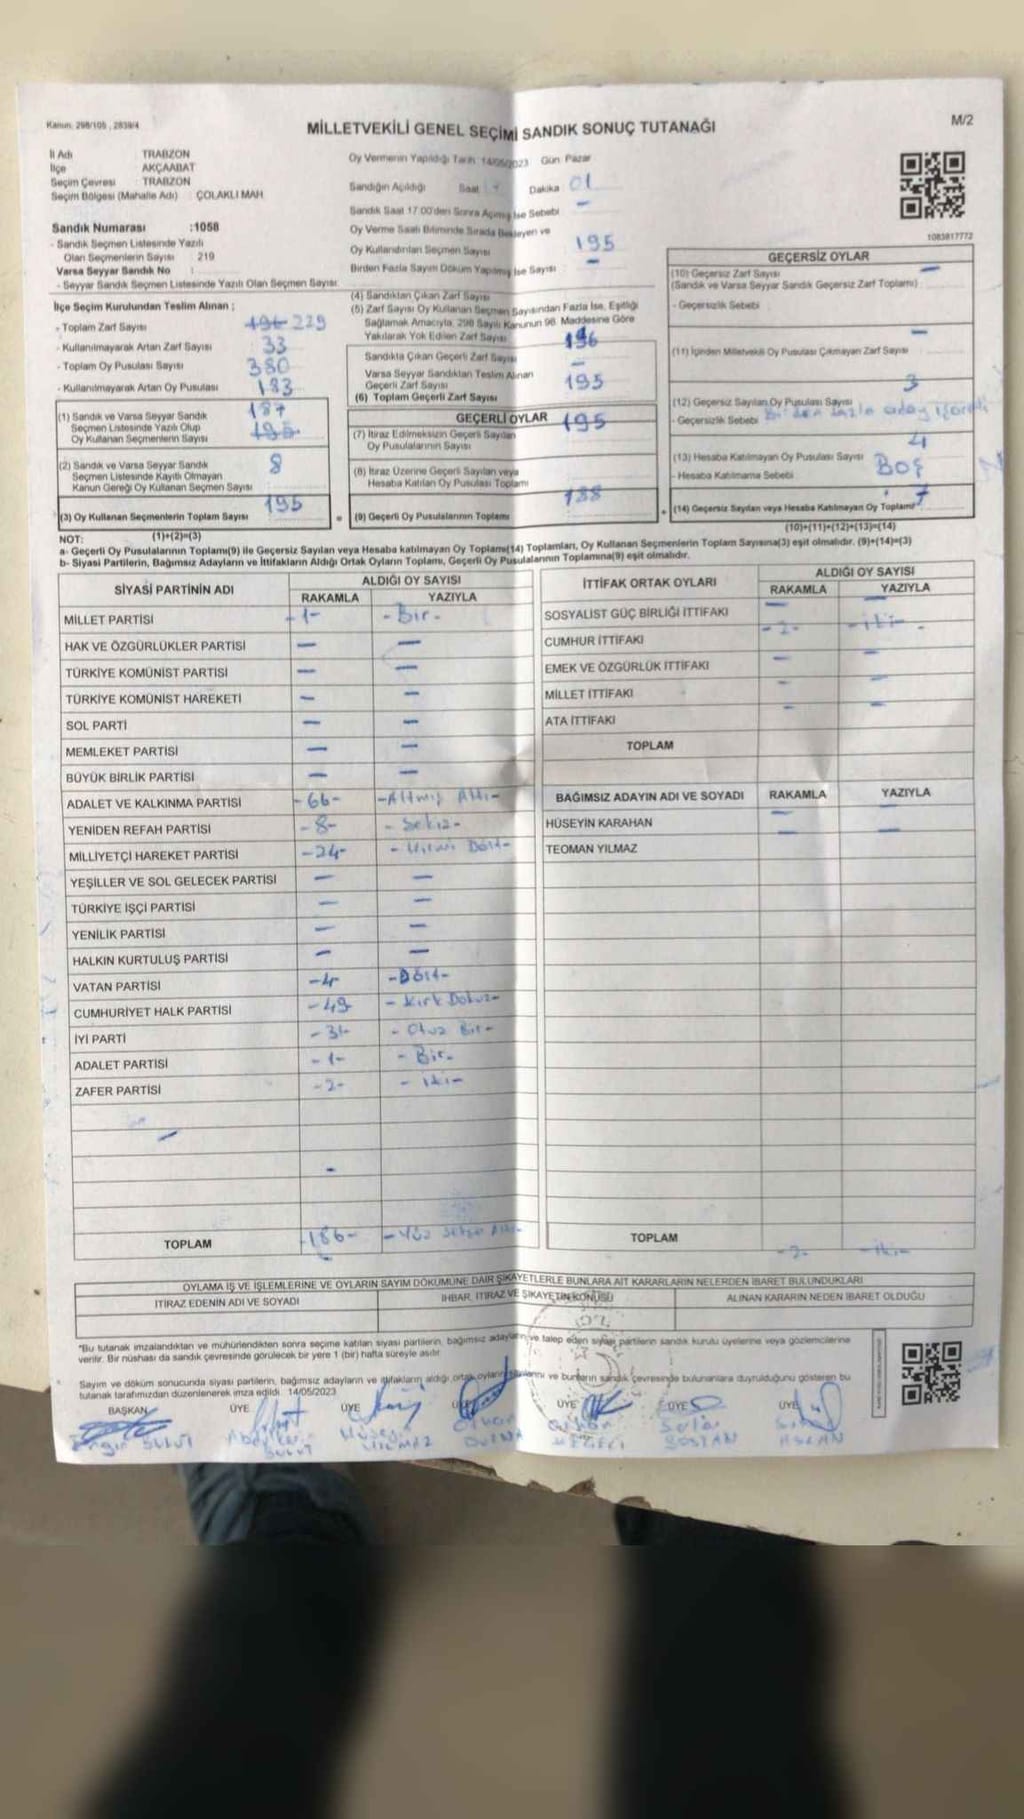 Kanun: 298/105 , 2839/4
MİLLETVEKİLİ GENEL SEÇİMİ SANDIK SONUÇ TUTANAĞI
M/2
İl Adı TRABZON
İlçe AKÇAABAT
Seçim Çevresi : TRABZON
Seçim Bölgesi (Mahalle Adı) : ÇOLAKLI MAH
Oy Vermenin Yapıldığı Tarih: 14/05/2023 Gün: Pazar
Sandığın Açıldığı Saat Dakika 01
Sandık Saat 17.00'den Sonra Açılmış İse Sebebi -
Oy Verme Saati Bitiminde Sırada Bekleyen ve
Oy Kullandırılan Seçmen Sayısı 195
Birden Fazla Sayım Döküm Yapılmış İse Sayısı -
1083817772
Sandık Numarası :1058
- Sandık Seçmen Listesinde Yazılı
Olan Seçmenlerin Sayısı 219
Varsa Seyyar Sandık No :
- Seyyar Sandık Seçmen Listesinde Yazılı Olan Seçmen Sayısı:
İlçe Seçim Kurulundan Teslim Alınan ;
- Toplam Zarf Sayısı 229
- Kullanılmayarak Artan Zarf Sayısı 33
- Toplam Oy Pusulası Sayısı 380
- Kullanılmayarak Artan Oy Pusulası 183
(1) Sandık ve Varsa Seyyar Sandık 187
Seçmen Listesinde Yazılı Olup
Oy Kullanan Seçmenlerin Sayısı 195
(2) Sandık ve Varsa Seyyar Sandık
Seçmen Listesinde Kayıtlı Olmayan 8
Kanun Gereği Oy Kullanan Seçmen Sayısı
(3) Oy Kullanan Seçmenlerin Toplam Sayısı 195
(1)+(2)=(3)
(4) Sandıktan Çıkan Zarf Sayısı
(5) Zarf Sayısı Oy Kullanan Seçmen Sayısından Fazla İse, Eşitliği
Sağlamak Amacıyla, 298 Sayılı Kanunun 98. Maddesine Göre
Yakılarak Yok Edilen Zarf Sayısı 196
Sandıkta Çıkan Geçerli Zarf Sayısı -
Varsa Seyyar Sandıktan Teslim Alınan
Geçerli Zarf Sayısı 195
(6) Toplam Geçerli Zarf Sayısı
GEÇERLİ OYLAR
195
(7) İtiraz Edilmeksizin Geçerli Sayılan
Oy Pusulalarının Sayısı
(8) İtiraz Üzerine Geçerli Sayılan veya
Hesaba Katılan Oy Pusulası Toplamı
188
(9) Geçerli Oy Pusulalarının Toplamı
GEÇERSİZ OYLAR
(10) Geçersiz Zarf Sayısı -
(Sandık ve Varsa Seyyar Sandık Geçersiz Zarf Toplamı)
- Geçersizlik Sebebi
-
(11) İçinden Milletvekili Oy Pusulası Çıkmayan Zarf Sayısı
3
(12) Geçersiz Sayılan Oy Pusulası Sayısı
- Geçersizlik Sebebi Birden fazla
4
(13) Hesaba Katılmayan Oy Pusulası Sayısı
- Hesaba Katılmama Sebebi BOŞ
7
(14) Geçersiz Sayılan veya Hesaba Katılmayan Oy Toplamı
(10)+(11)+(12)+(13)=(14)
NOT:
a- Geçerli Oy Pusulalarının Toplamı(9) ile Geçersiz Sayılan veya Hesaba katılmayan Oy Toplamı(14) Toplamları, Oy Kullanan Seçmenlerin Toplam Sayısına(3) eşit olmalıdır. (9)+(14)=(3)
b- Siyasi Partilerin, Bağımsız Adayların ve İttifakların Aldığı Ortak Oyların Toplamı, Geçerli Oy Pusulalarının Toplamına(9) eşit olmalıdır.
SİYASİ PARTİNİN ADI ALDIĞI OY SAYISI
RAKAMLA YAZIYLA
MİLLET PARTİSİ -1- -Bir-
HAK VE ÖZGÜRLÜKLER PARTİSİ - -
TÜRKİYE KOMÜNİST PARTİSİ - -
TÜRKİYE KOMÜNİST HAREKETİ - -
SOL PARTİ - -
MEMLEKET PARTİSİ - -
BÜYÜK BİRLİK PARTİSİ - -
ADALET VE KALKINMA PARTİSİ -66- -Altmış Altı-
YENİDEN REFAH PARTİSİ -8- -Sekiz-
MİLLİYETÇİ HAREKET PARTİSİ -24- -Yirmi Dört-
YEŞİLLER VE SOL GELECEK PARTİSİ - -
TÜRKİYE İŞÇİ PARTİSİ - -
YENİLİK PARTİSİ - -
HALKIN KURTULUŞ PARTİSİ - -
VATAN PARTİSİ -4- -Dört-
CUMHURİYET HALK PARTİSİ -49- -Kırk Dokuz-
İYİ PARTİ -31- -Otuz Bir-
ADALET PARTİSİ -1- -Bir-
ZAFER PARTİSİ -2- -iki-
TOPLAM -186- -Yüz Seksen Altı-
İTTİFAK ORTAK OYLARI ALDIĞI OY SAYISI
RAKAMLA YAZIYLA
SOSYALİST GÜÇ BİRLİĞİ İTTİFAKI - -
CUMHUR İTTİFAKI -2- -iki-
EMEK VE ÖZGÜRLÜK İTTİFAKI - -
MİLLET İTTİFAKI - -
ATA İTTİFAKI - -
TOPLAM
BAĞIMSIZ ADAYIN ADI VE SOYADI RAKAMLA YAZIYLA
HÜSEYİN KARAHAN - -
TEOMAN YILMAZ - -
TOPLAM -2- -iki-
OYLAMA İŞ VE İŞLEMLERİNE VE OYLARIN SAYIM DÖKÜMÜNE DAİR ŞİKAYETLERLE BUNLARA AİT KARARLARIN NELERDEN İBARET BULUNDUKLARI
İTİRAZ EDENİN ADI VE SOYADI İHBAR, İTİRAZ VE ŞİKAYETİN KONUSU ALINAN KARARIN NEDEN İBARET OLDUĞU
"Bu tutanak imzalandıktan ve mühürlendikten sonra seçime katılan siyasi partilerin, bağımsız adayların ve talep eden siyasi partilerin sandık kurulu üyelerine veya gözlemcilerine
verilir. Bir nüshası da sandık çevresinde görülecek bir yere 1 (bir) hafta süreyle asılır.
Sayım ve döküm sonucunda siyasi partilerin, bağımsız adayların ve ittifakların aldığı ortak oyların sayılarını ve bunların sandık çevresinde bulunanlara duyurulduğunu gösteren bu
tutanak tarafımızdan düzenlenerek imza edildi. 14/05/2023
BAŞKAN ÜYE ÜYE ÜYE ÜYE ÜYE
Engin BULUT Hüseyin YILMAZ ASLAN